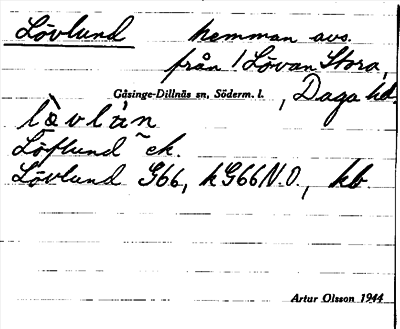 Lövlund hemman avs.
från 1 Lövan Stora,
Gåsinge-Dillnäs sn, Söderm. l., Daga hd.
lö̀vlùn
Löflund ~ ek.
Lövlund G66, kG66N.O., kb.
Artur Olsson 1944